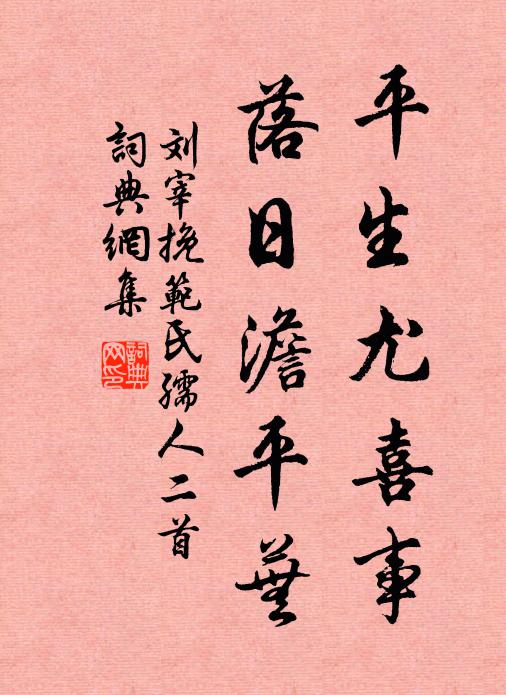 平生尤喜事
落日澹平蕪
刘宰挽範民孺人二首
詞典網集
詞典
网印